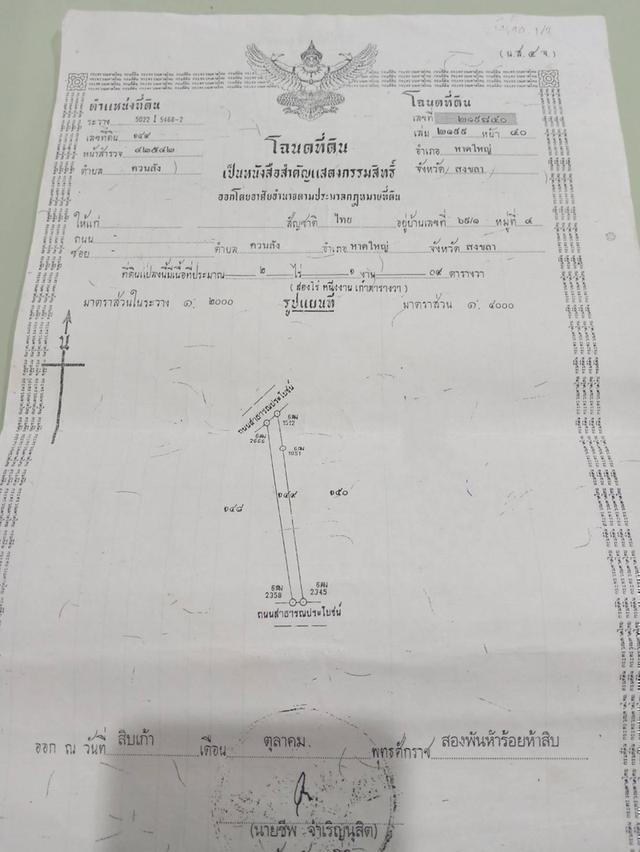 (น.ส.๔ จ.)
ตำแหน่งที่ดิน
ระวาง 5022 I 5468-2
เลขที่ดิน ๑๔๙
หน้าสำรวจ ๔๒๕๔๒
ตำบล ควนลัง
โฉนดที่ดิน
เลขที่ ๒๑๕๘๔๐
เล่ม ๒๑๕๙ หน้า ๔๐
อำเภอ หาดใหญ่
จังหวัด สงขลา
โฉนดที่ดิน
เป็นหนังสือสำคัญแสดงกรรมสิทธิ์
ออกโดยอาศัยอำนาจตามประมวลกฎหมายที่ดิน
ให้แก่ สัญชาติ ไทย อยู่บ้านเลขที่ ๖๕/๑ หมู่ที่ ๔
ถนน -
ซอย - ตำบล ควนลัง อำเภอ หาดใหญ่ จังหวัด สงขลา
ที่ดินแปลงนี้มีเนื้อที่ประมาณ ๒ ไร่ ๑ งาน ๐๙ ตารางวา
(สองไร่ หนึ่งงาน เก้าตารางวา)
มาตราส่วนในระวาง ๑: ๒๐๐๐ รูปแผนที่ มาตราส่วน ๑: ๔๐๐๐
น
ถนนสาธารณประโยชน์
1512
2666
1051
๑๔๘ ๑๔๙ ๑๕๐
2358 2345
ถนนสาธารณประโยชน์
ออก ณ วันที่ สิบเก้า เดือน ตุลาคม พุทธศักราช สองพันห้าร้อยห้าสิบ
(นายชีพ จำเริญนุสิต)